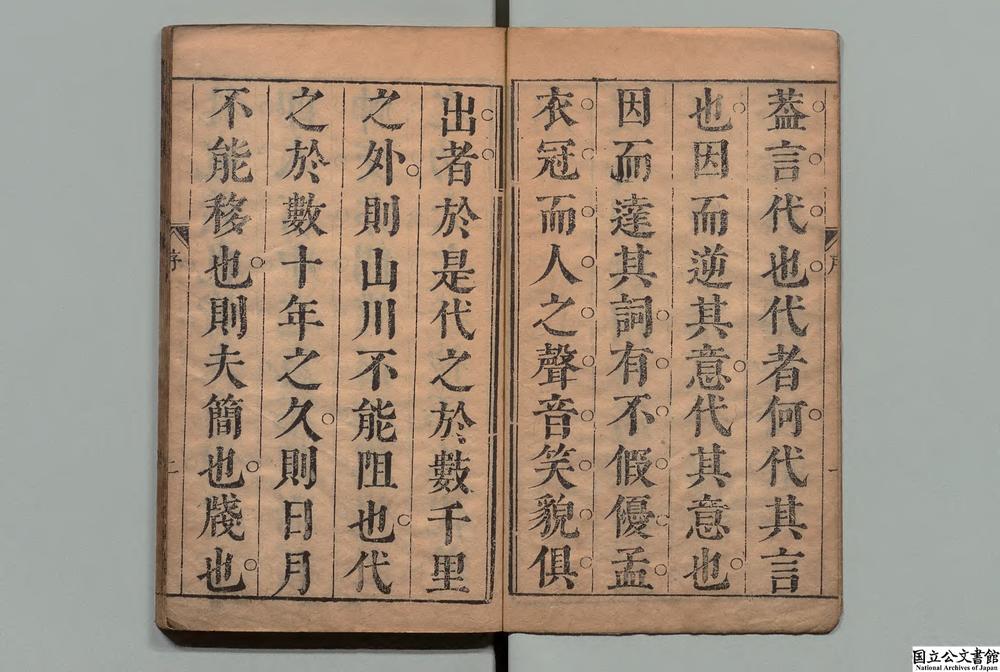 葢言代也代者何代其言
也因而逆其意代其意也
因而達其詞有不假優孟
衣冠而人之聲音笑貌俱
出者於是代之於數千里
之外則山川不能阻也代
之於數十年之久則日月
不能移也則夫簡也牋也
序
二
一
国立公文書館
National Archives of Japan